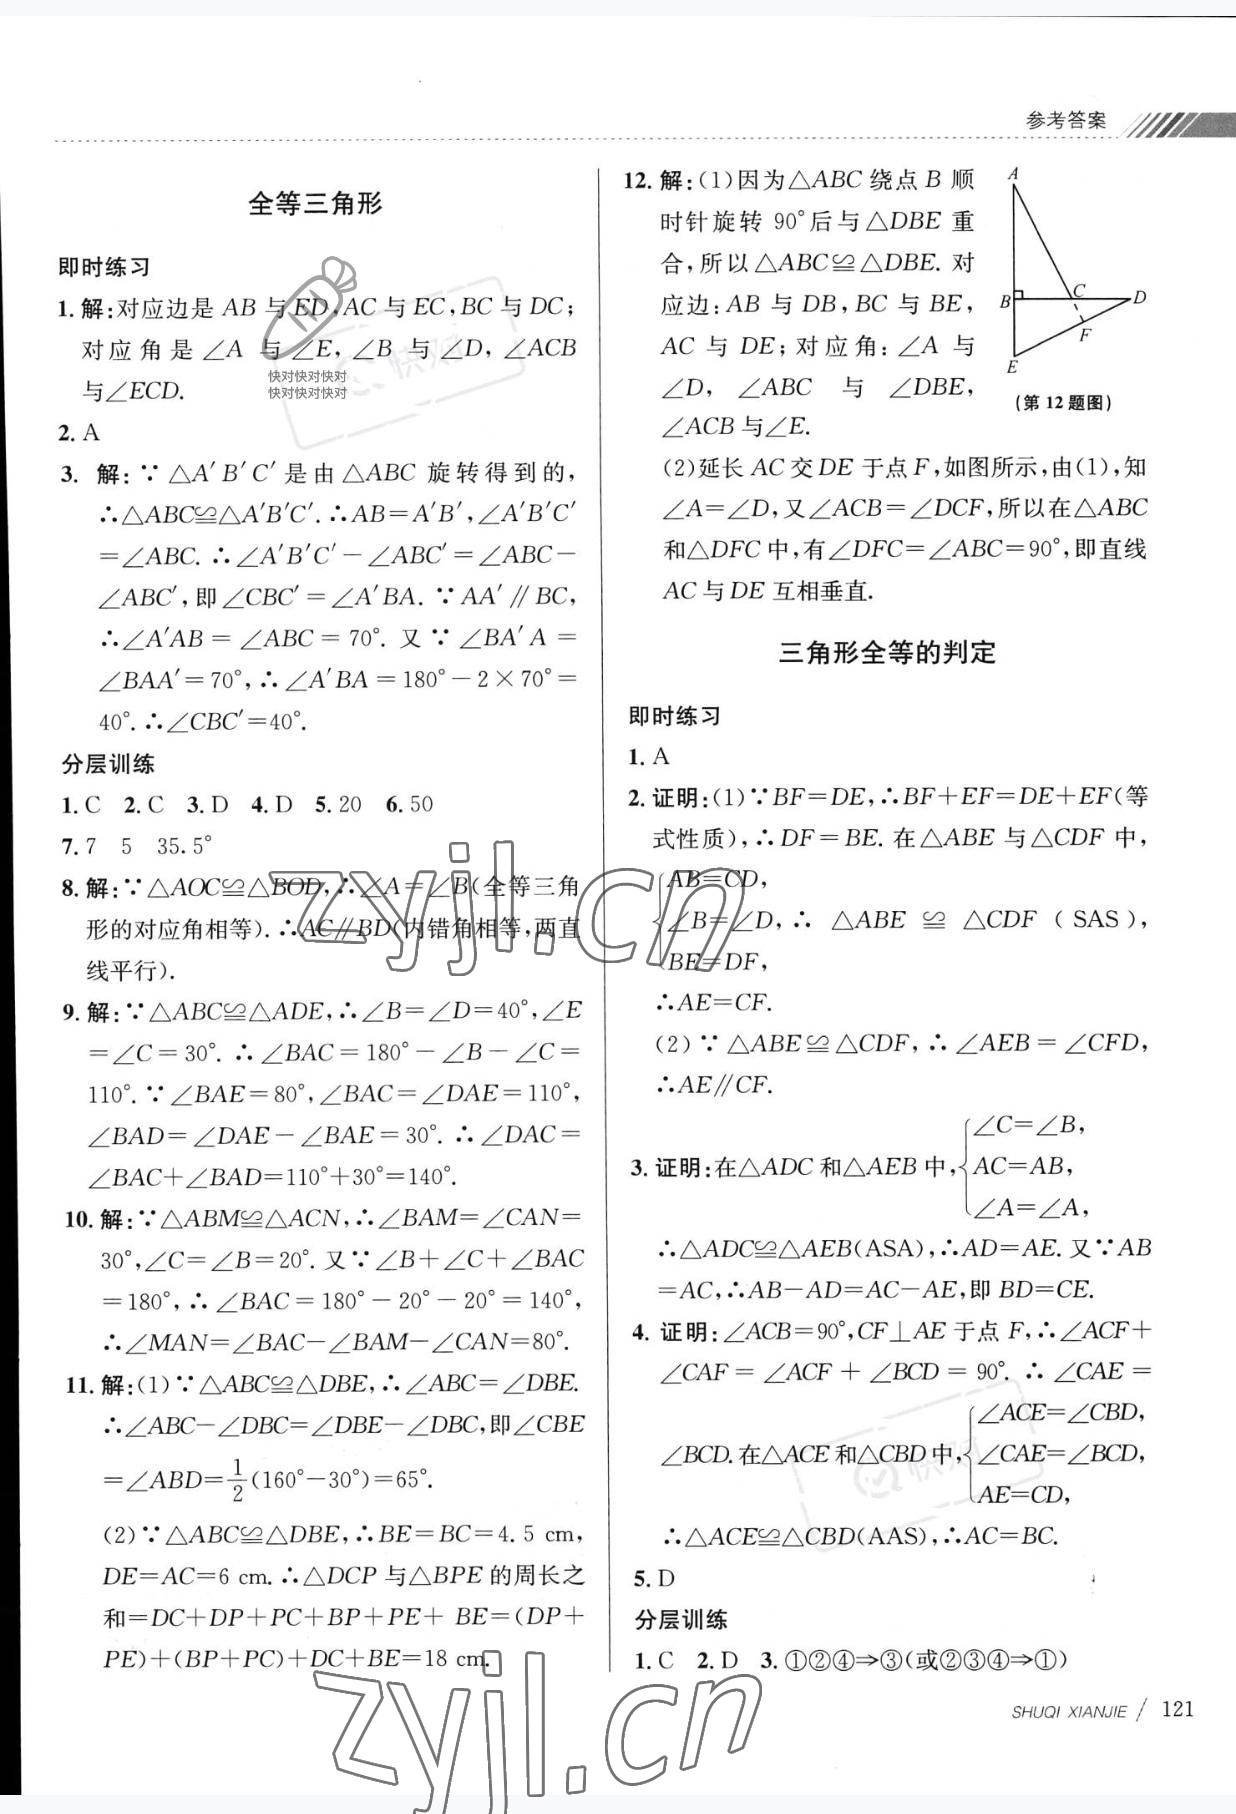 参考答案
全等三角形
即时练习
1. 解:对应边是 AB 与 ED,AC 与 EC,BC 与 DC;
对应角是∠A 与∠E,∠B 与∠D,∠ACB
与∠ECD.
快对快对快对
快对快对快对
2. A
3. 解:∵△A′B′C′是由△ABC 旋转得到的,
∴△ABC≌△A′B′C′.∴AB=A′B′,∠A′B′C′
=∠ABC.∴∠A′B′C′-∠ABC′=∠ABC-
∠ABC′,即∠CBC′=∠A′BA.∵AA′∥BC,
∴∠A′AB=∠ABC=70°.又∵∠BA′A=
∠BAA′=70°,∴∠A′BA=180°-2×70°=
40°.∴∠CBC′=40°.
分层训练
1. C 2. C 3. D 4. D 5. 20 6. 50
7. 7 5 35.5°
8. 解:∵△AOC≌△BOD,∴∠A=∠B(全等三角
形的对应角相等).∴AC∥BD(内错角相等,两直
线平行).
9. 解:∵△ABC≌△ADE,∴∠B=∠D=40°,∠E
=∠C=30°.∴∠BAC=180°-∠B-∠C=
110°.∵∠BAE=80°,∠BAC=∠DAE=110°,
∠BAD=∠DAE-∠BAE=30°.∴∠DAC=
∠BAC+∠BAD=110°+30°=140°.
10. 解:∵△ABM≌△ACN,∴∠BAM=∠CAN=
30°,∠C=∠B=20°.又∵∠B+∠C+∠BAC
=180°,∴∠BAC=180°-20°-20°=140°,
∴∠MAN=∠BAC-∠BAM-∠CAN=80°.
11. 解:(1)∵△ABC≌△DBE,∴∠ABC=∠DBE.
∴∠ABC-∠DBC=∠DBE-∠DBC,即∠CBE
=∠ABD=1/2(160°-30°)=65°.
(2)∵△ABC≌△DBE,∴BE=BC=4.5 cm,
DE=AC=6 cm.∴△DCP 与△BPE 的周长之
和=DC+DP+PC+BP+PE+BE=(DP+
PE)+(BP+PC)+DC+BE=18 cm.
12. 解:(1)因为△ABC 绕点 B 顺
时针旋转 90°后与△DBE 重
合,所以△ABC≌△DBE.对
应边:AB 与 DB,BC 与 BE,
AC 与 DE;对应角:∠A 与
∠D,∠ABC 与 ∠DBE,
∠ACB 与∠E.
A
B
C
D
F
E
(第 12 题图)
(2)延长 AC 交 DE 于点 F,如图所示,由(1),知
∠A=∠D,又∠ACB=∠DCF,所以在△ABC
和△DFC 中,有∠DFC=∠ABC=90°,即直线
AC 与 DE 互相垂直.
三角形全等的判定
即时练习
1. A
2. 证明:(1)∵BF=DE,∴BF+EF=DE+EF(等
式性质),∴DF=BE.在△ABE 与△CDF 中,
AB=CD,
∠B=∠D,∴△ABE≌△CDF(SAS),
BE=DF,
∴AE=CF.
(2)∵△ABE≌△CDF,∴∠AEB=∠CFD,
∴AE∥CF.
∠C=∠B,
3. 证明:在△ADC 和△AEB 中,AC=AB,
∠A=∠A,
∴△ADC≌△AEB(ASA),∴AD=AE.又∵AB
=AC,∴AB-AD=AC-AE,即 BD=CE.
4. 证明:∠ACB=90°,CF⊥AE 于点 F,∴∠ACF+
∠CAF=∠ACF+∠BCD=90°.∴∠CAE=
∠ACE=∠CBD,
∠BCD.在△ACE 和△CBD 中,∠CAE=∠BCD,
AE=CD,
∴△ACE≌△CBD(AAS),∴AC=BC.
5. D
分层训练
1. C 2. D 3. ①②④⇒③(或②③④⇒①)
SHUQI XIANJIE / 121
快对
zyjl.cn
快对
zyjl.cn